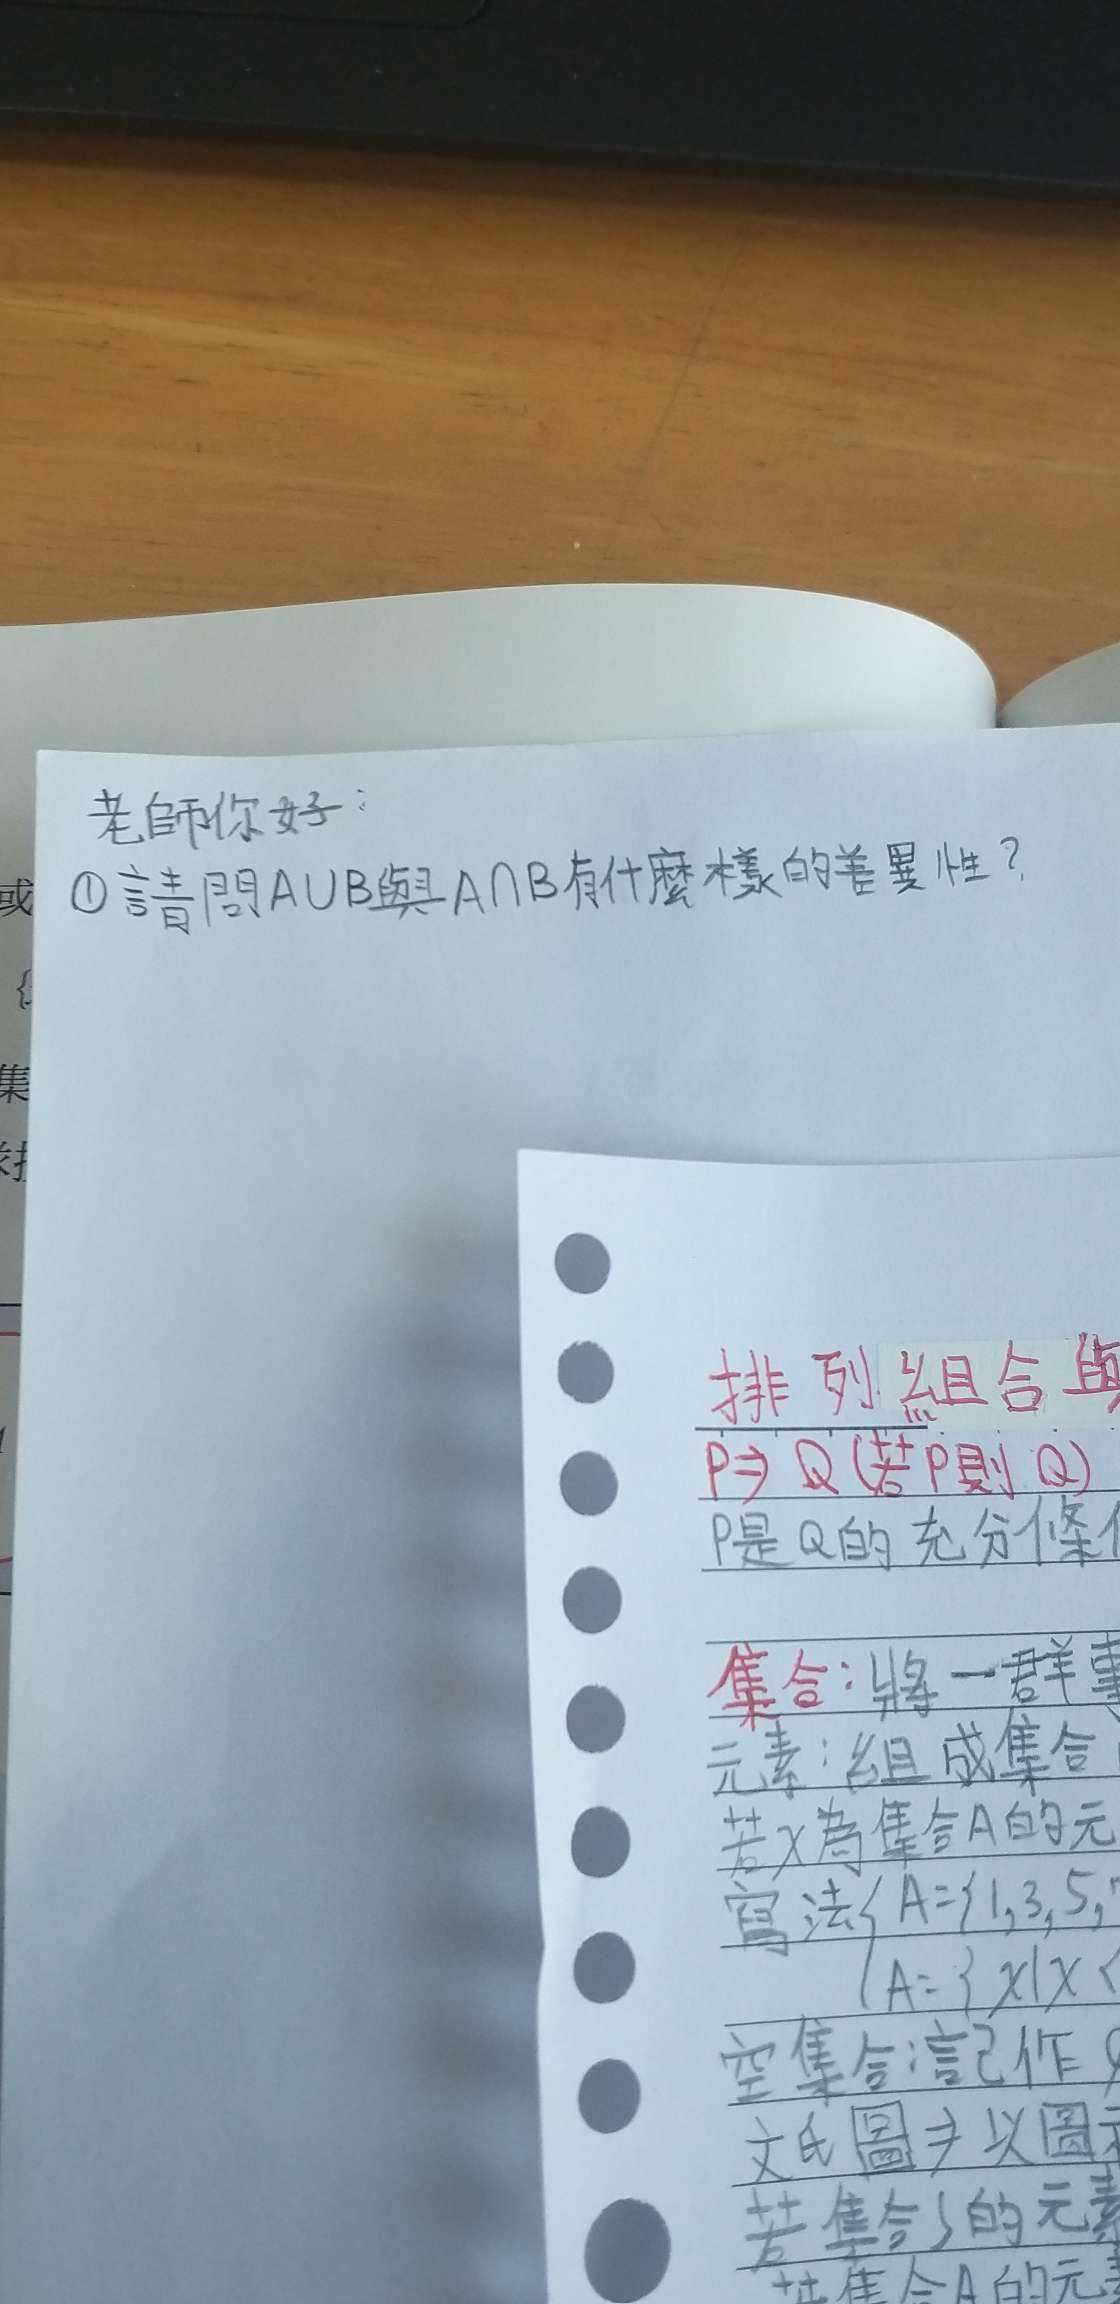 老師你好：
①請問A∪B與A∩B有什麼樣的差異性？
或
集
排列組合與
P⇒Q(若P則Q)
P是Q的充分條
集合：將一群事
元素：組成集合
若x為集合A的元
寫法{A={1,3,5,
{A={x|x<
空集合：記作
文氏圖⇒以圖示
若集合S的元素
若集合A的元素